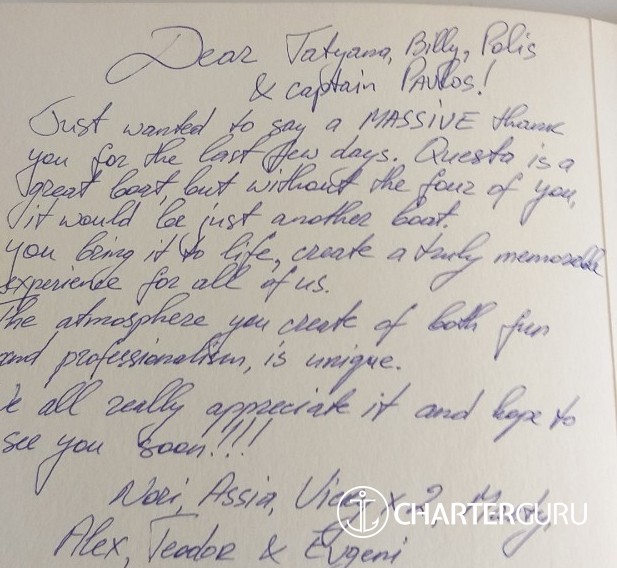 Dear Tatyana, Billy, Polis
& captain PAVLOS!
Just wanted to say a MASSIVE thank
you for the last few days. Questa is a
great boat, but without the four of you,
it would be just another boat.
you bring it to life, create a truly memorable
experience for all of us.
The atmosphere you create of both fun
and professionalism, is unique.
e all really appreciate it and hope to
see you soon!!!!
Nori, Assia, x 2,
CHARTERGURU
Alex, Teodor & Evgeni